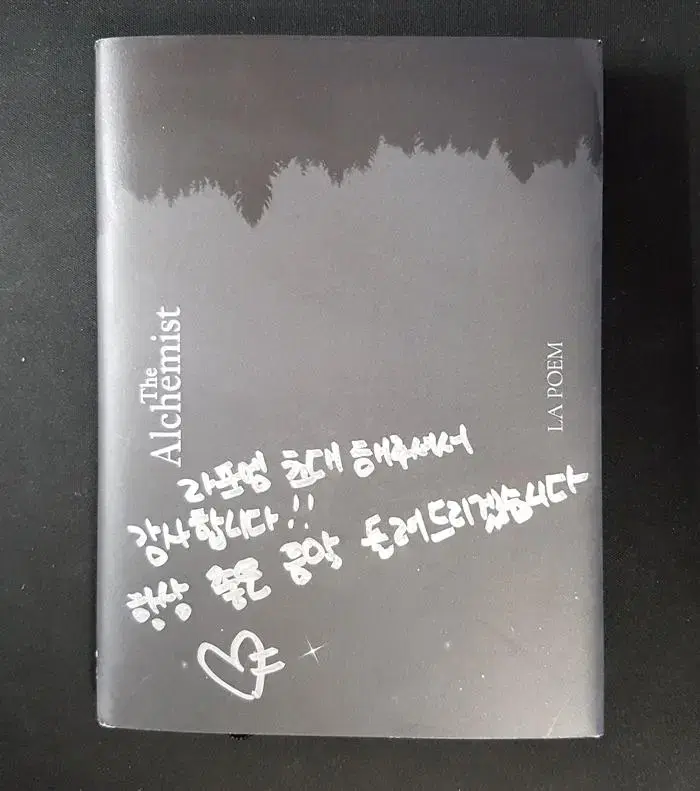 The
Alchemist
LA POEM
라포엠 초대 해주셔서
감사합니다!!
항상 좋은 음악 들려드리겠습니다